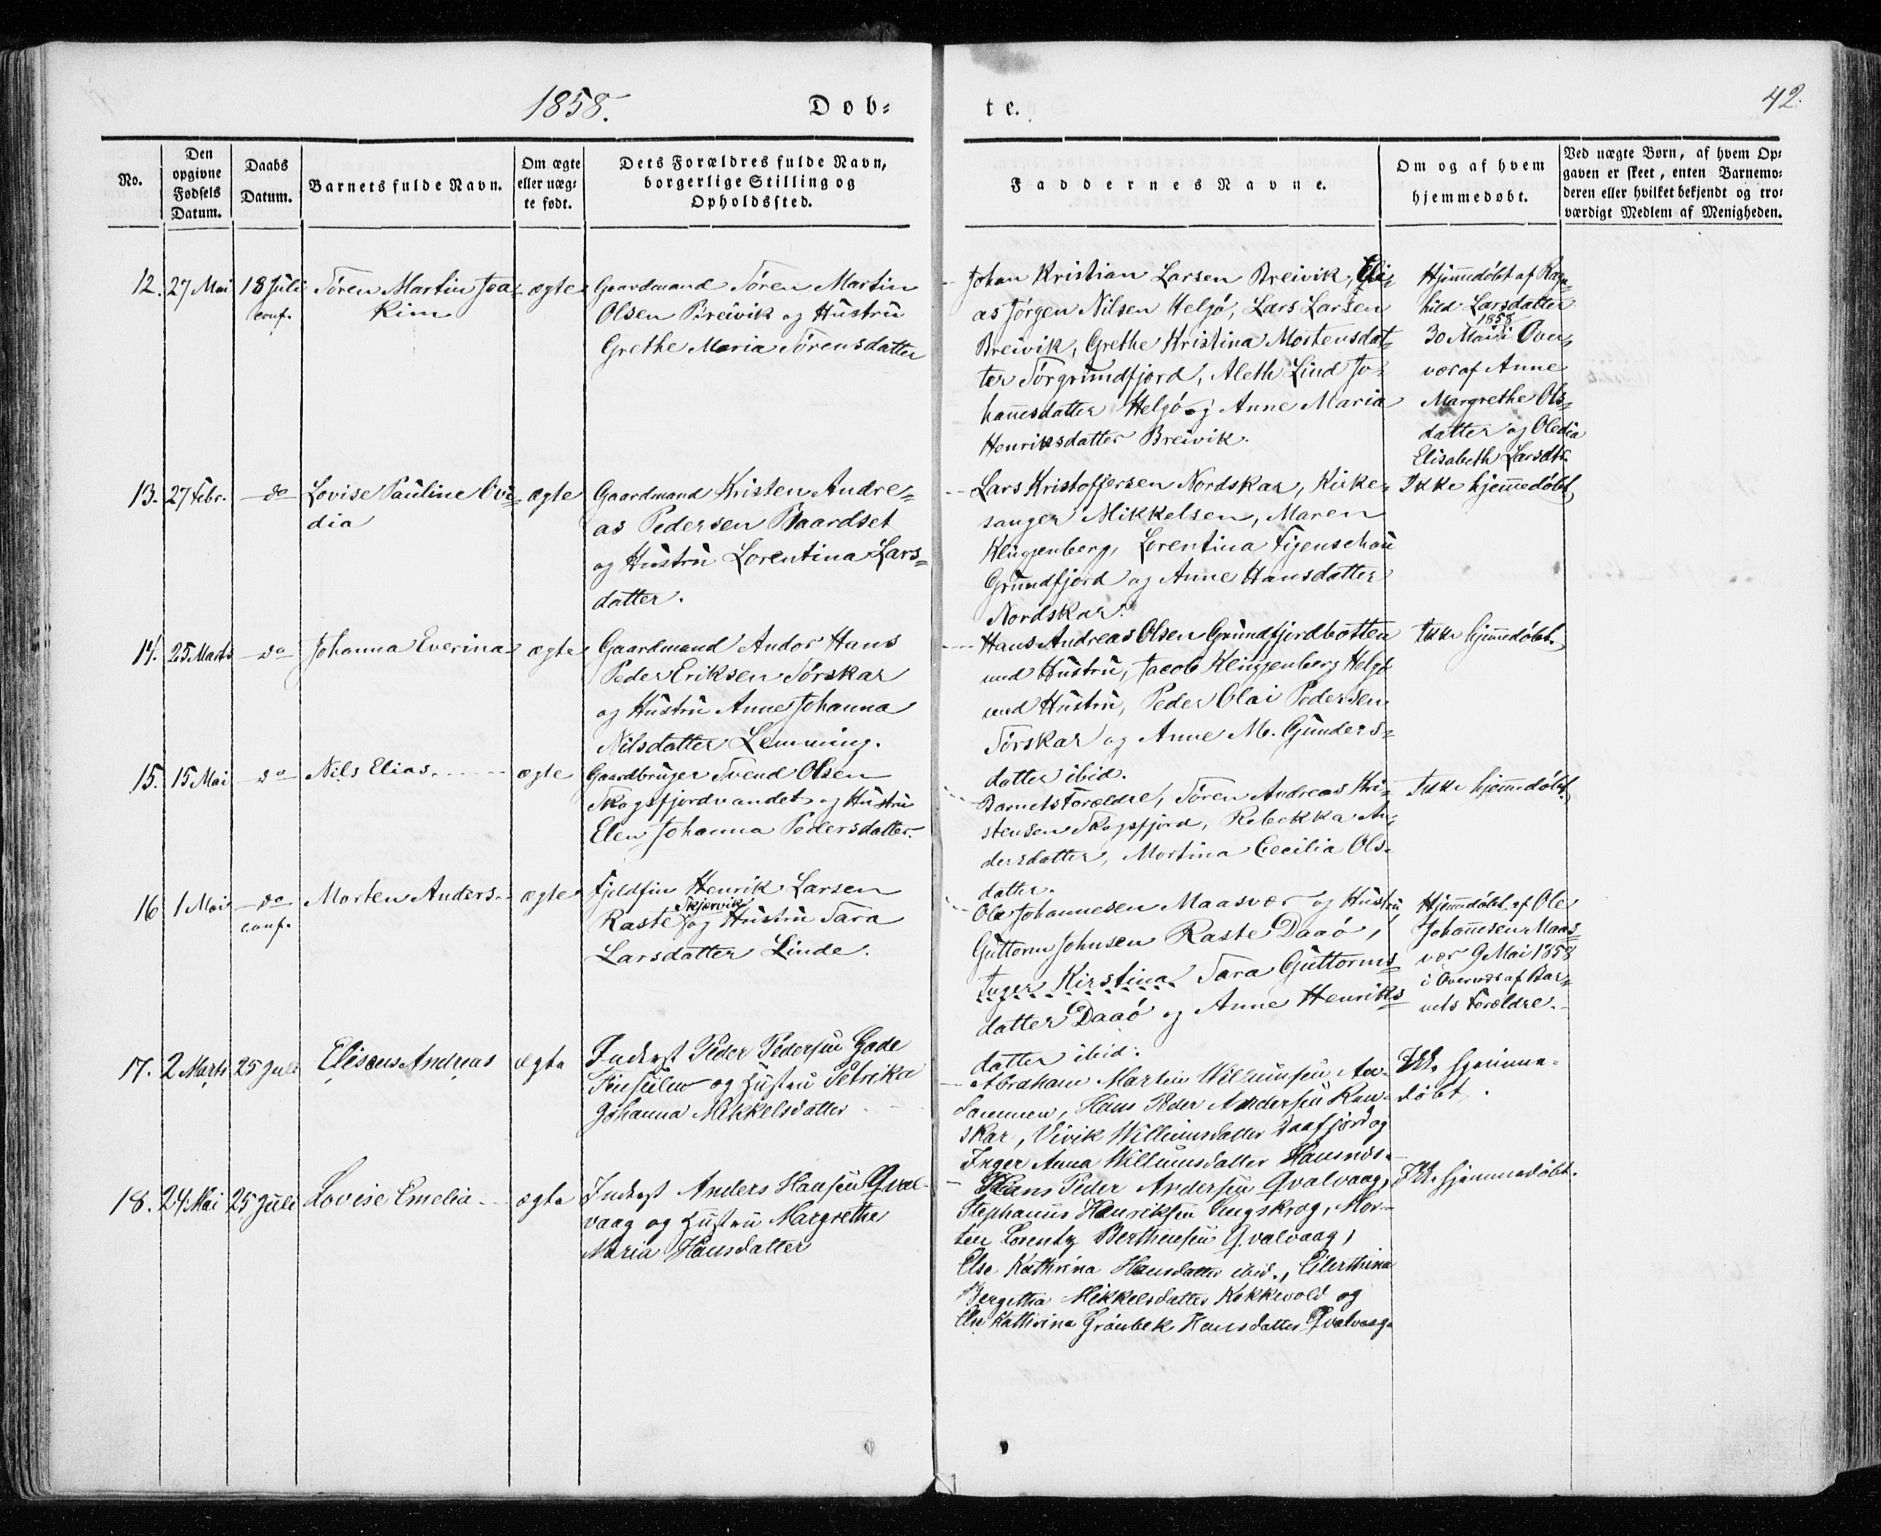 1858.
Dob-
te.
42.
No.
Den
opgivne
Fødsels
Datum.
Daabs
Datum.
Barnets fulde Navn.
Om ægte
eller uæg-
te født.
Dets Forældres fulde Navn,
borgerlige Stilling og
Opholdssted.
Faddernes Navne.
Om og af hvem
hjemmedøbt.
Ved uægte Børn, af hvem Op-
gaven er skeet, enten Barnemo-
deren eller hvilket bekjendt og tro-
værdigt Medlem af Menigheden.
12. 27 Mai 18 Juli
conf.
Sören Martin Joa-
kim
ægte
Gaardmand Sören Martin
Olsen Breivik og Hustru
Grethe Maria Sörensdatter
Johan Kristian Larsen Breivik, Eli-
as Jörgen Nilsen Helgö, Lars Larsen
Breivik, Grethe Kristina Mortensdat-
ter Sörgrundfjord, Aleth Lind Jo-
hannesdatter Helgö og Anne Maria
Henriksdatter Breivik.
Hjemmedöbt af Ragn-
hild Larsdatter
1858
30 Mai i Over-
vær af Anne
Margrethe Ols-
datter og Oledia
Elisabeth Larsdtr.
13. 27 Febr. do
Lovise Pauline Ovi-
dia
ægte
Gaardmand Kristen Andre-
as Pedersen Baardset
og Hustru Lorentina Lars-
datter.
Lars Kristoffersen Nordskar, Kirke-
sanger Mikkelsen, Maren
Klingenberg, Lorentina Figenschou
Grundfjord og Anne Hansdatter
Nordskar.
Ikke hjemmedöbt
14. 25 Marts do
Johanna Everina
ægte
Gaardmand Andor Hans
Peder Eriksen Sörskar
og Hustru Anne Johanna
Nilsdatter Lemming.
Hans Andreas Olsen Grundfjordbotten
med Hustru, Jacob Klingenberg Helgö
med Hustru, Peder Olai Pedersen
Sörskar og Anne M. Gunders-
datter ibid.
Ikke hjemmedöbt.
15. 15 Mai do
Nils Elias
ægte
Gaardbruger Svend Olsen
Skogsfjordvandet og Hustru
Elen Johanna Pedersdatter.
Barnets Forældre, Sören Andreas Kri-
stensen Skogsfjord, Rebekka An-
dersdatter, Martina Cecilia Ols-
datter.
Ikke hjemmedöbt.
16 1 Mai do
conf.
Morten Anders
ægte
Fjeldfin Henrik Larsen
Skjervik
Raste og Hustru Sara
Larsdatter Linde.
Ole Johannesen Maasvær og Hustru
Guttorm Johnsen Raste Daaö,
Inger Kirstina Sara Guttorms-
datter Daaö og Anne Henriks-
datter ibid.
Hjemmedöbt af Ole
Johannesen Maas-
vær 9 Mai 1858
i Overvær af Bar-
nets Forældre.
17. 2 Marts 25 Juli
Eliseus Andreas
ægte
Inderst Peder Pedersen Gade
og Hustru Petrika
Johanna Mikkelsdatter
Abraham Martin Willumsen An-
Hans Peder Andersen Ran-
skar, Vivik Willumsdatter Daafjord og
Inger Anna Willumsdatter
Ikke hjemme-
döbt.
18. 24 Mai 25 Juli
Lovise Emelia
ægte
Inderst Anders Hansen Qval-
vaag og Hustru Margrethe
Maria Hansdatter
Hans Peder Andersen Qvalvaag,
Stephanus Henriksen Mor-
ten Lorentz Berthensen Qvalvaag,
Else Kathrina Hansdatter ibid., Eilerthina
Bergitha Mikkelsdatter Kokkevold og
Else Kathrina Grönbek Hansdatter Qvalvaag
Ikke hjemmedöbt.